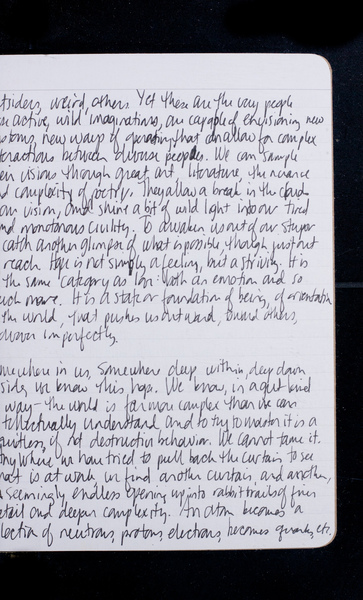 tsiders, weird, others. Yet these are the very people
active, wild imaginations, are capable of envisioning new
stems, new ways of operating that can allow for complex
teractions between diverse peoples. We can sample
en visions through great art, literature, the nuance
d complexity of poetry. They allow a break in the cloud
our vision, and shine a bit of wild light into our tired
nd monotonous civility. To awaken us out of our stupor
catch another glimpse of what is possible though just out
reach. Hope is not simply a feeling, but a striving. It is
the same category as love: both an emotion and so
uch more. It is a state or foundation of being, of orientation
the world, that pushes us outward, toward others,
imperfectly.
mewhere in us, somewhere deep within, deep down
side, we know this hope. We know, in a gut-level
way - the world is far more complex than we can
tellectually understand and to try to master it is a
if not destructive behavior. We cannot tame it.
where we have tried to pull back the curtain to see
hat is at work we find another curtain, and another,
seemingly endless opening up into rabbit trails of finer
etail and deeper complexity. An atom becomes a
llection of neutrons, protons, electrons, becomes quarks, etc.